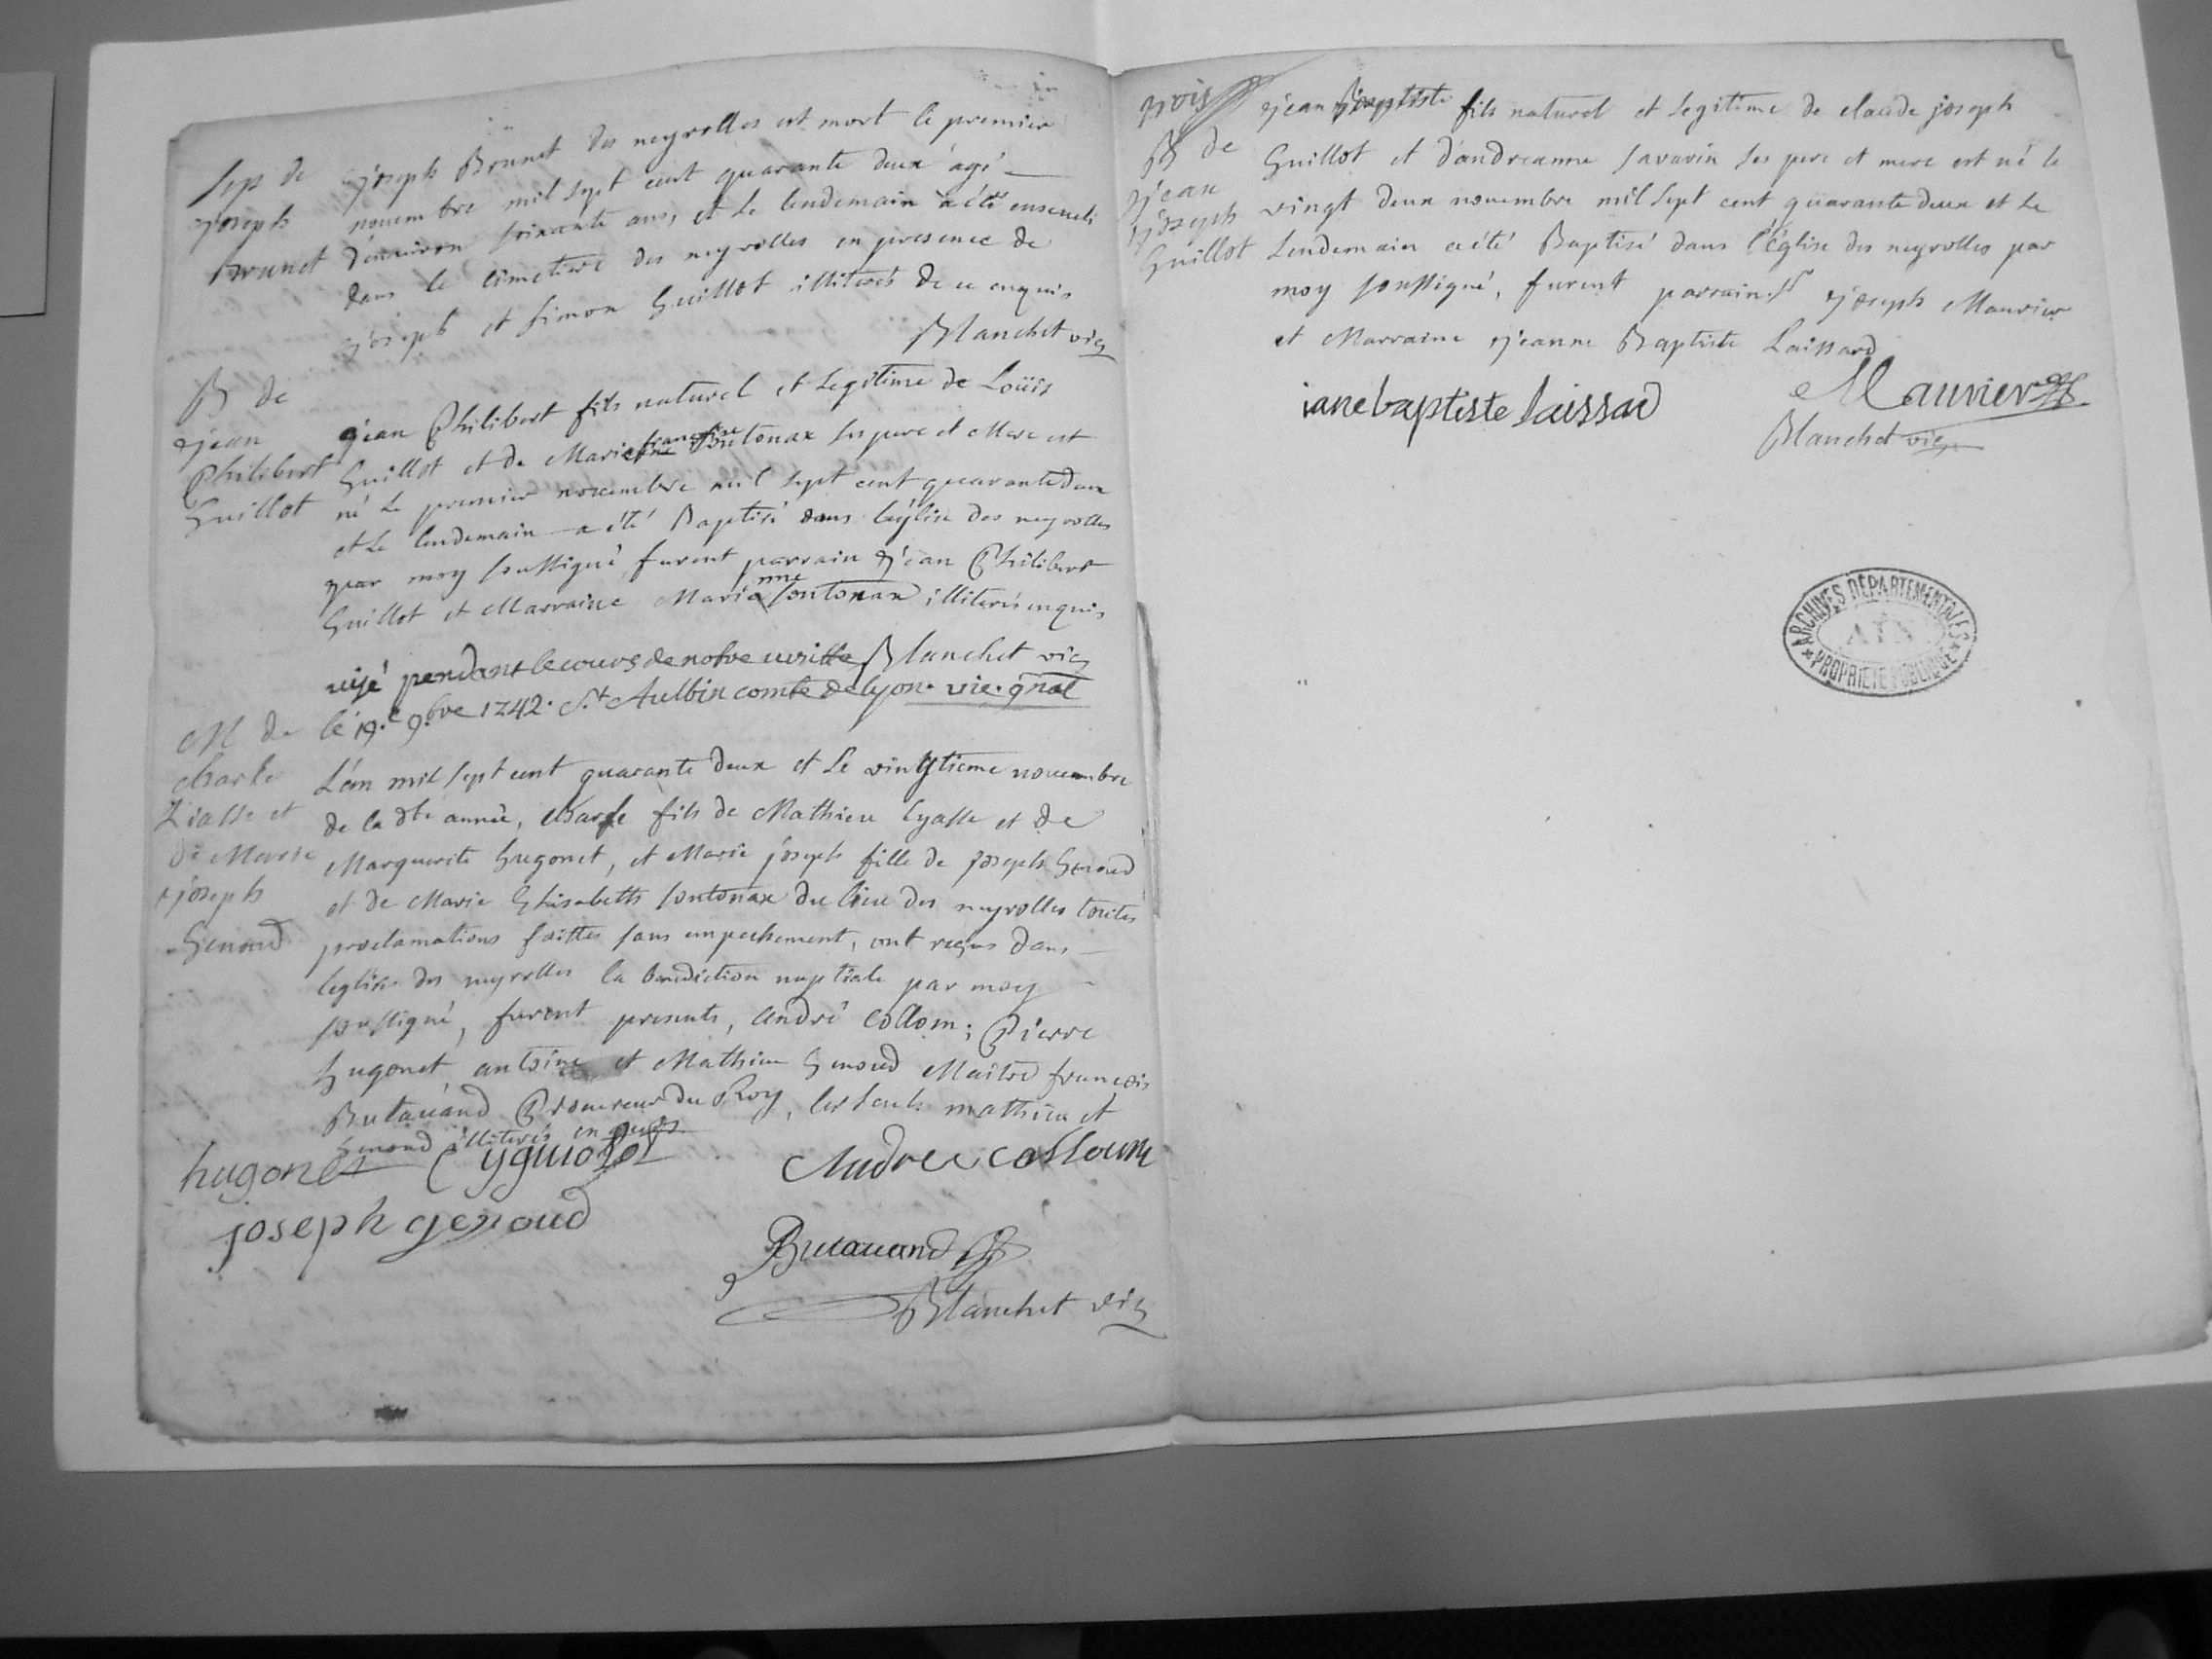 Sep de
joseph
Brunet
joseph Brunet des neyrolles est mort le premier
novembre mil sept cent quarante deux agé
d'environ soixante ans, et le lendemain a été enseveli
dans le cimetiere des neyrolles en presence de
joseph et simon Guillot illiterés de ce enquis
Blanchet vic
B de
jean
Philibert
Guillot
jean Philibert fils naturel et legitime de Loüis
Guillot et de Marie françoise Sontonax ses pere et Mere est
né le premier novembre mil sept cent quarante deux
et le lendemain a été Baptisé dans l'église des neyrolles
par moy soussigné furent parrain jean Philibert
Guillot et Marraine Marianne Sontonax illiterés enquis
Blanchet vic
visé pendant le cours de notre visitte
le 19.e 9.bre 1742. St Aulbin comte de lyon. vic. gnal
M de
charle
Liasse et
de Marie
joseph
Genoud
L'an mil sept cent quarante deux et le vingtieme novembre
de la dte année, charle fils de Mathieu lyasse et de
Marguerite hugonet, et Marie joseph fille de joseph Genoud
et de Marie Elisabeth sontonax du lieu des neyrolles toutes
proclamations faittes sans empechement, ont reçus dans
leglise des neyrolles la benediction nuptiale par moy
soussigné, furent presents, andré collom; Pierre
hugonet antoine et Mathieu Genoud Maitre françois
Butavand Procureur du Roy, les seuls mathieu et
Genoud illiterés enquis
hugonet
Andre colloum
joseph genoud
Butavand
Blanchet vic
B de
jean
joseph
Guillot
jean Baptiste fils naturel et legitime de claude joseph
Guillot et d'andreanne savarin ses pere et mere est né le
vingt deux novembre mil sept cent quarante deux et le
lendemain a été Baptisé dans l'église des neyrolles par
moy soussigné, furent parrain Sr joseph Mauvier
et Marraine jeanne Baptiste Laissard
iane baptiste laissard
Mauvier
Blanchet vic
ARCHIVES DÉPARTEMENTALES
AIN
PROPRIÉTÉ PUBLIQUE